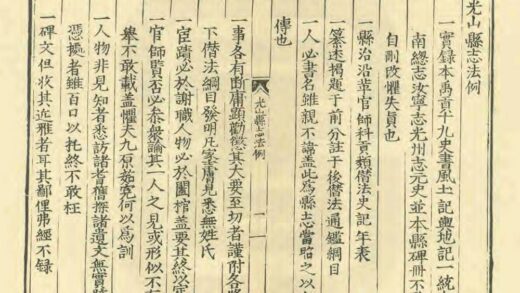 光山縣志法例
一實錄本禹貢千九史書風土記輿地記一統
南總志汝寧志光州志元史並本縣碑冊不
自刪改懼失員也
一縣治沿革官師科貢類僭法史記年表
纂述揭題于前分註于後僭法通鑑綱目
一人必書名雖親不諱蓋此為縣志當昭之以
傳也
光山縣志法例
一
一事各有斷庸顕勸懲其大要至切者謹附各
下僭法綱目發明凡衆膚見悉無姓氏
宦蹟必於謝職人物必於闔棺蓋要其終以定
官師賢否必叅衆論其一人之見或形似不
舉不敢載蓋懼夫九原姤寃何以為訓
一人物非見知者悉訪諸耆舊探諸遺文無實
憑據者雖百口以托終不敢枉
一碑文但收其近雅者耳其鄙俚弗經不錄